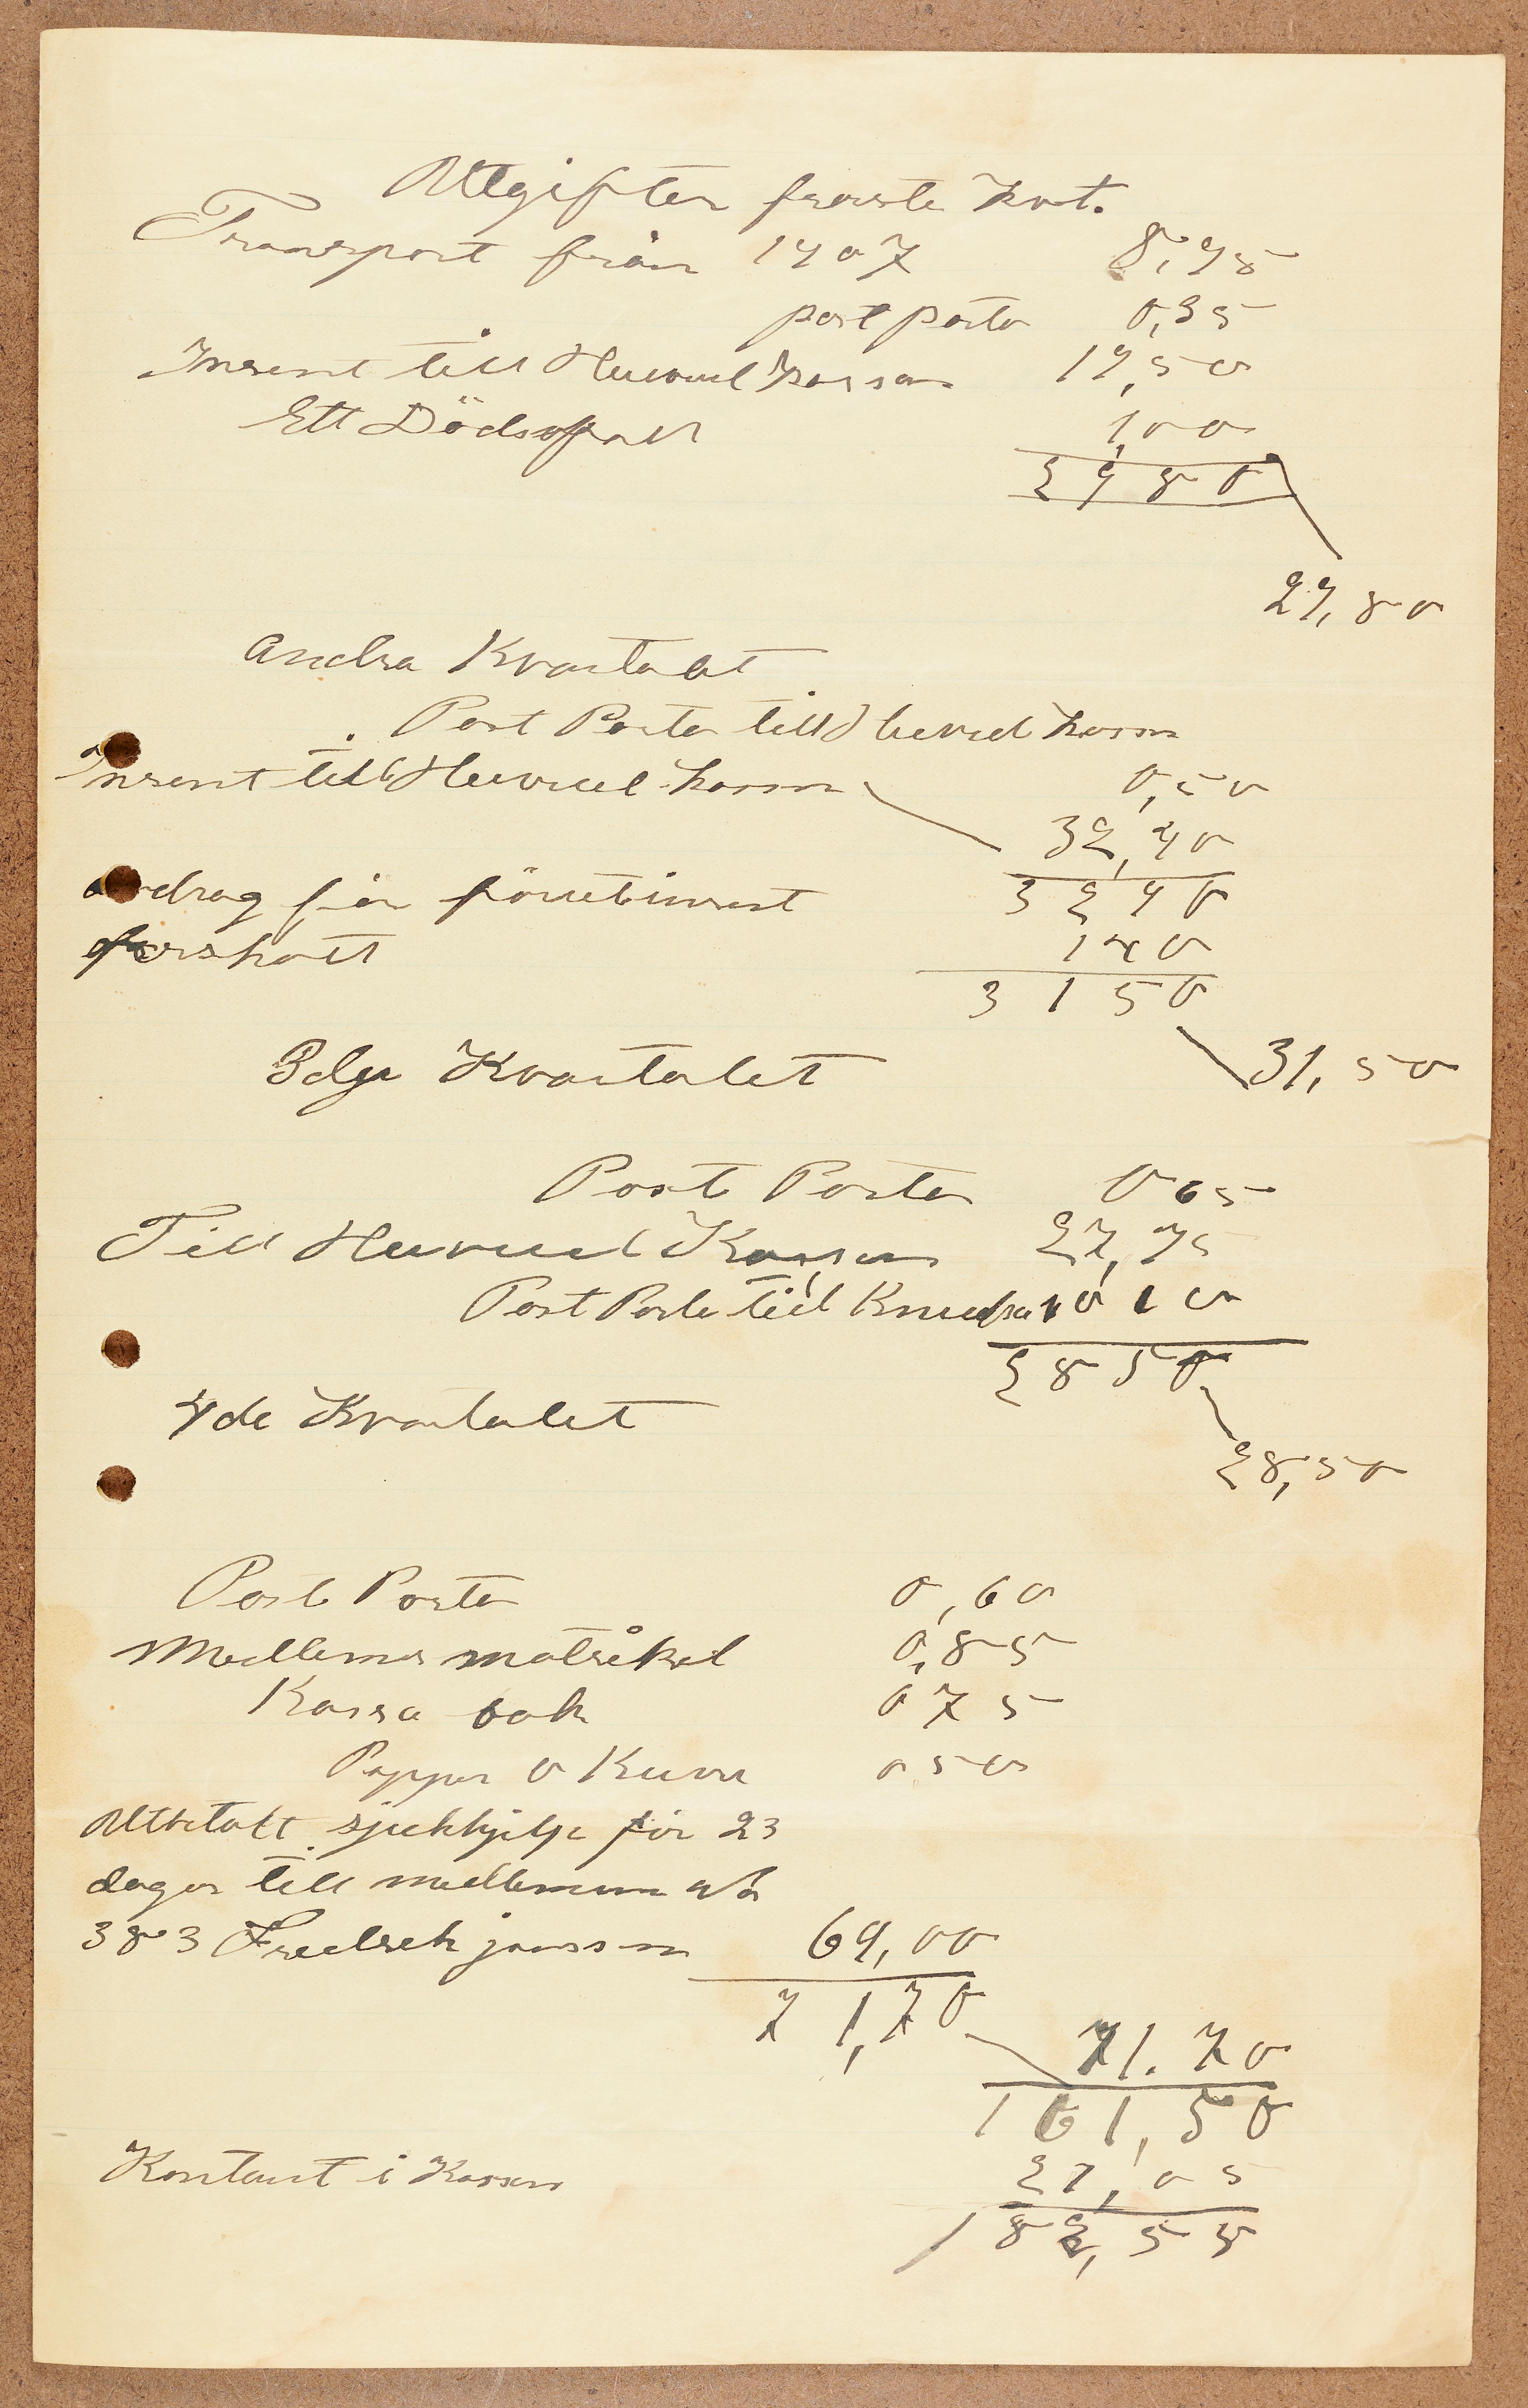 Utgifter första kvt.
Transport från 1907 8,95
post porto 0,35
Insent till Huvud kassan 19,50
Ett Dödsfall 1,00
29 80
29,80
Andra Kvartalet
Post Porto till Huvud kassan
Insent till Huvud kassan 0,50
32,40
avdrag för förut insent 32 90
förskott 1 40
31 50
3dje Kvartalet 31,50
Post Porto 0 65
Till Huvud Kassan 27,75
Post Porto till 0 10
28 50
4de Kvartalet
28,50
Post Porto 0,60
Medlems matrikel 0,85
Kassa bok 0 75
Papper o Kuver 0 50
Utbetalt sjukhjelp för 23
dagar till medlemmen No
383 Fredrek jonsson 69,00
71,70
71.70
161,50
Kontant i Kassan 21,05
182,55